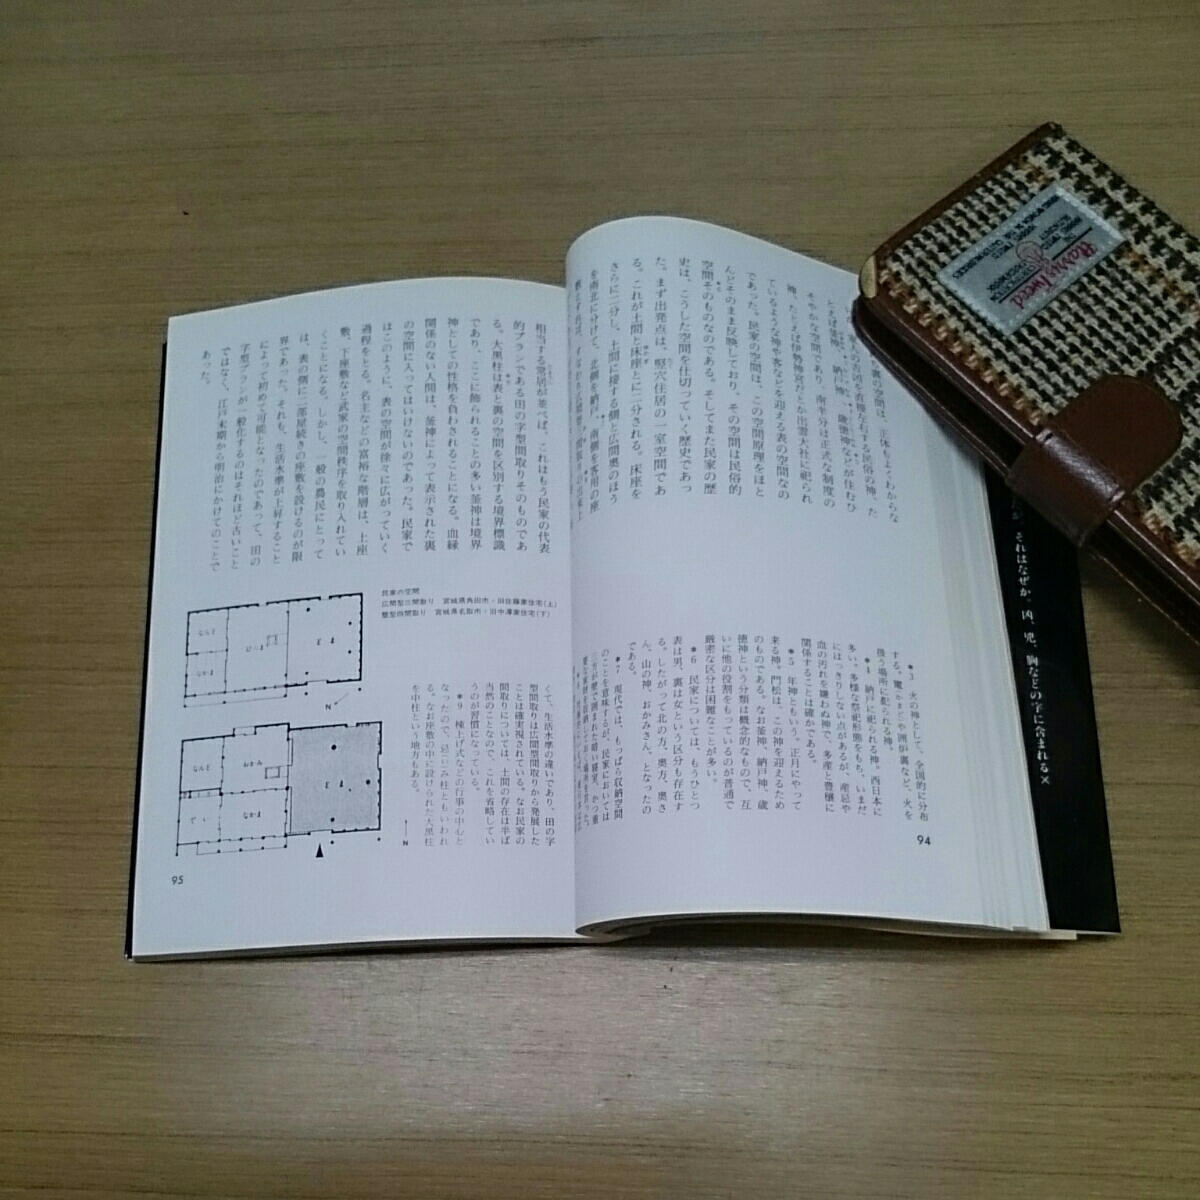 裏の空間は、正体もよくわからな
家人の吉凶を直接左右する民俗の神、た
とえば釜神、納戸神、歳徳神などが住むひ
そやかな空間であり、南半分は正式な制度の
神、たとえば伊勢神宮だとか出雲大社に祀られ
ているような神や客などを迎える表の空間なの
であった。民家の空間は、この空間原理をほと
んどそのまま反映しており、その空間は民俗的
空間そのものなのである。そしてまた民家の歴
史は、こうした空間を仕切っていく歴史であっ
た。まず出発点は、竪穴住居の一室空間であ
る。これが土間と床座とに二分される。床座を
さらに二分し、土間に接する側と広間奥のほう
を南北に分けて、北側を納戸、南側を客用の座
敷とすれば、すなわち広間型三間取りの出来上
*3 火の神として、全国的に分布
する。竈かまどや囲炉裏など、火を
扱う場所に祀られる神。
*4 納戸に祀られる神。西日本に
多い。多様な祭祀形態をもち、いまだ
にはっきりしない点があるが、産忌や
血の汚れを嫌わぬ神で、多産と豊穣に
関係することは確かである。
*5 年神ともいう。正月にやって
来る神。門松は、この神を迎えるため
のものである。なお釜神、納戸神、歳
徳神という分類は概念的なもので、互
いに他の役割をもっているのが普通で
厳密な区分は困難なことが多い。
*6 民家については、もうひとつ
表は男、裏は女という区分も存在す
る。したがって北の方、奥方、奥さ
ん、山の神、おかみさん、となったの
である。
*7 現代では、もっぱら収納空間
のことを意味するが、民家においては
三方が壁で囲まれた暗い寝室、かつ重
94
相当する常居が並べば、これはもう民家の代表
的プランである田の字型間取りそのものであ
る。大黒柱は表と裏の空間を区別する境界標識
であり、ここに飾られることの多い釜神は境界
神としての性格を負わされることになる。血縁
関係のない人間は、釜神によって表示された裏
の空間に入ってはいけないのであった。民家で
はこのように、表の空間が徐々に広がっていく
過程をとる。名主などの富裕な階層は、上座
敷、下座敷など武家の空間秩序を取り入れてい
くことになる。しかし、一般の農民にとって
は、表の側に二部屋続きの座敷を設けるのが限
界であった。それも、生活水準が上昇すること
によって初めて可能となったのであって、田の
字型プランが一般化するのはそれほど古いこと
ではなく、江戸末期から明治にかけてのことで
あった。
民家の空間
広間型三間取り 宮城県角田市・旧佐藤家住宅(上)
整型四間取り 宮城県名取市・旧中澤家住宅(下)
なんど
なかま
ひろま
どま
N
なんど
おかみ
でい
なかま
どま
N
くて、生活水準の違いであり、田の字
型間取りは広間型間取りから発展した
ことは確実視されている。なお民家の
間取りについては、土間の存在は半ば
当然のことなので、これを省略してい
うのが習慣になっている。
*9 棟上げ式などの行事の中心と
なったので、忌(いみ)柱ともいわれ
る。なお座敷の中に設けられた大黒柱
を中柱という地方もある。
95
それはなぜか。凶、兇、胸などの字に含まれる×
Harris Tweed